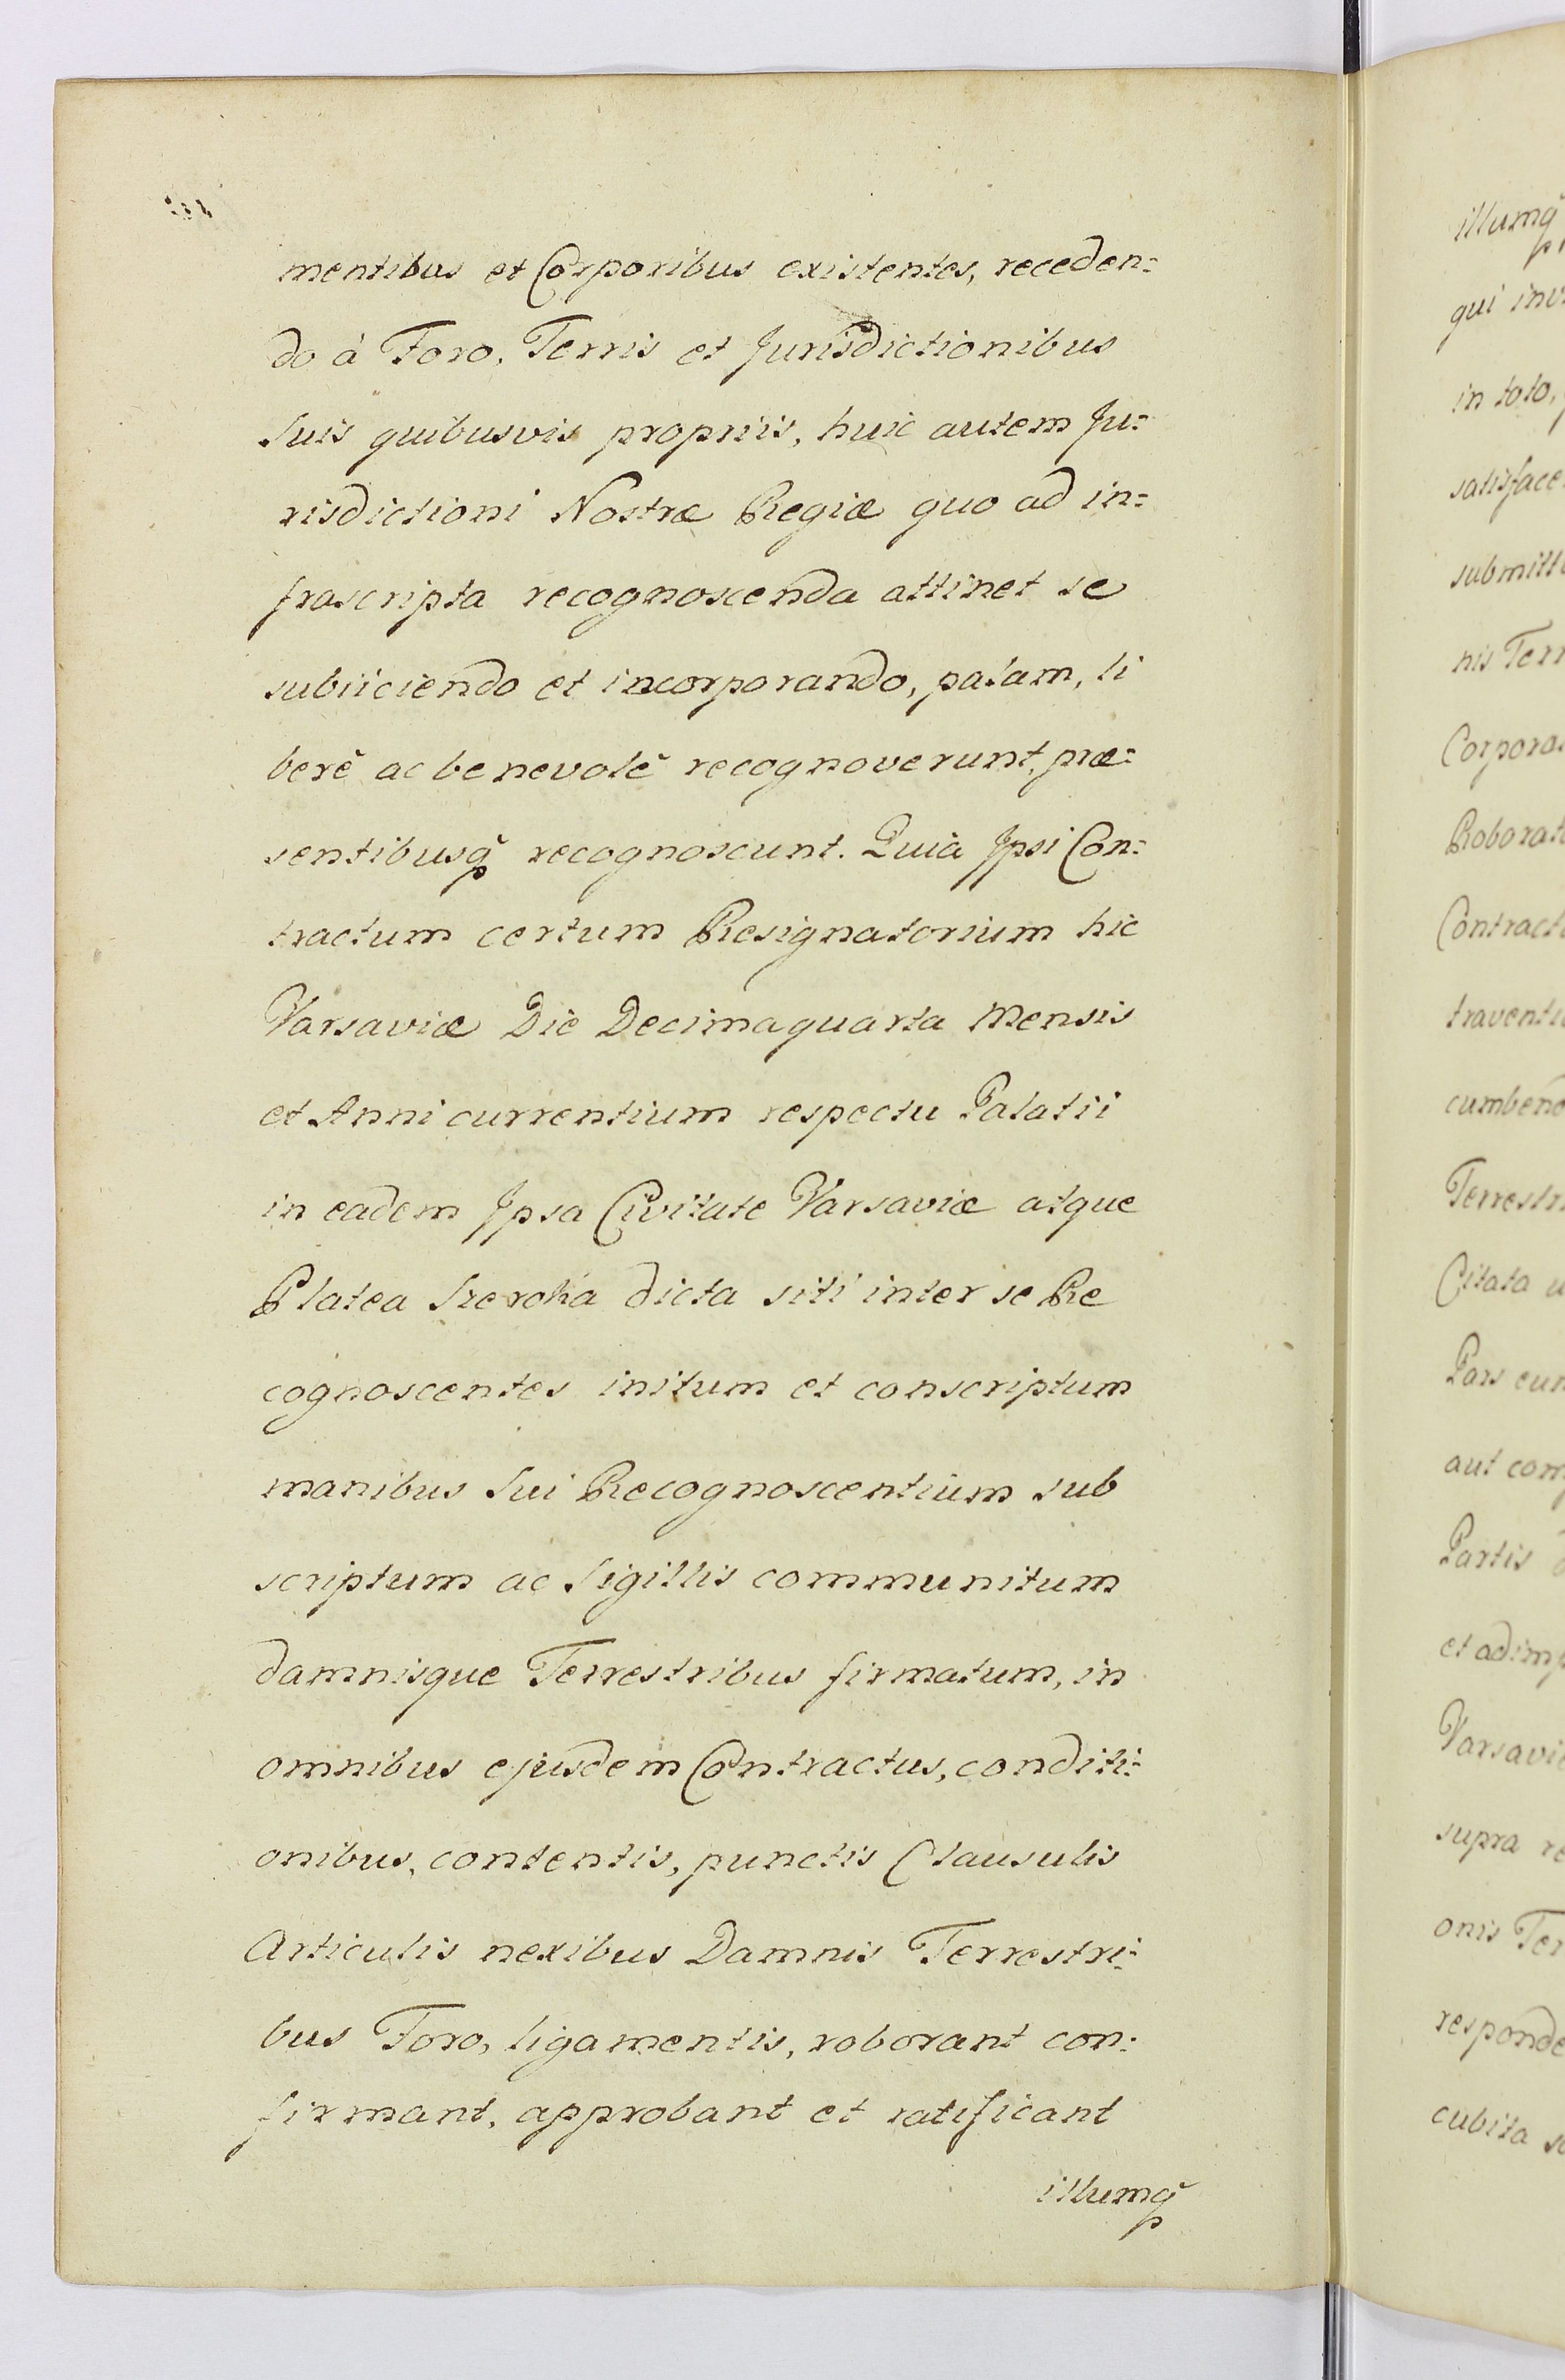 mentibus et Corporibus existentes, receden=
do à Foro, Terris et Jurisdictionibus
Suis quibusvis propriis, huic autem Ju=
risdictioni Nostræ Regiæ quo ad in=
frascripta recognoscenda attinet se
subiiciendo et incorporando, palam, li
berè ac benevolè recognoverunt, præ=
sentibusq̃ recognoscunt. Quia Ipsi Con=
tractum certum Resignatorium hic
Varsaviæ Die Decimaquarta Mensis
et Anni currentium respectu Palatii
in eadem Ipsa Civitate Varsaviæ atque
Platea Szeroka dicta siti inter se Re
cognoscentes initum et conscriptum
manibus Sui Recognoscentium sub
scriptum ac Sigillis communitum
damnisque Terrestribus firmatum, in
omnibus ejusdem Contractus, conditi=
onibus, contentis, punctis Clausulis
Articulis nexibus Damnis Terrestri=
bus Foro, ligamentis, roborant con=
firmant, approbant et ratificant
illumq̃
illumq̃
qui inv
in toto,
satisface
submitt
nis Terr
Corpora
Roborat
Contract
traventi
cumbend
Terrestr
Citata
Pars eun
aut com
Partis
et adimp
Varsavi
supra re
onis Ter
responde
cubita